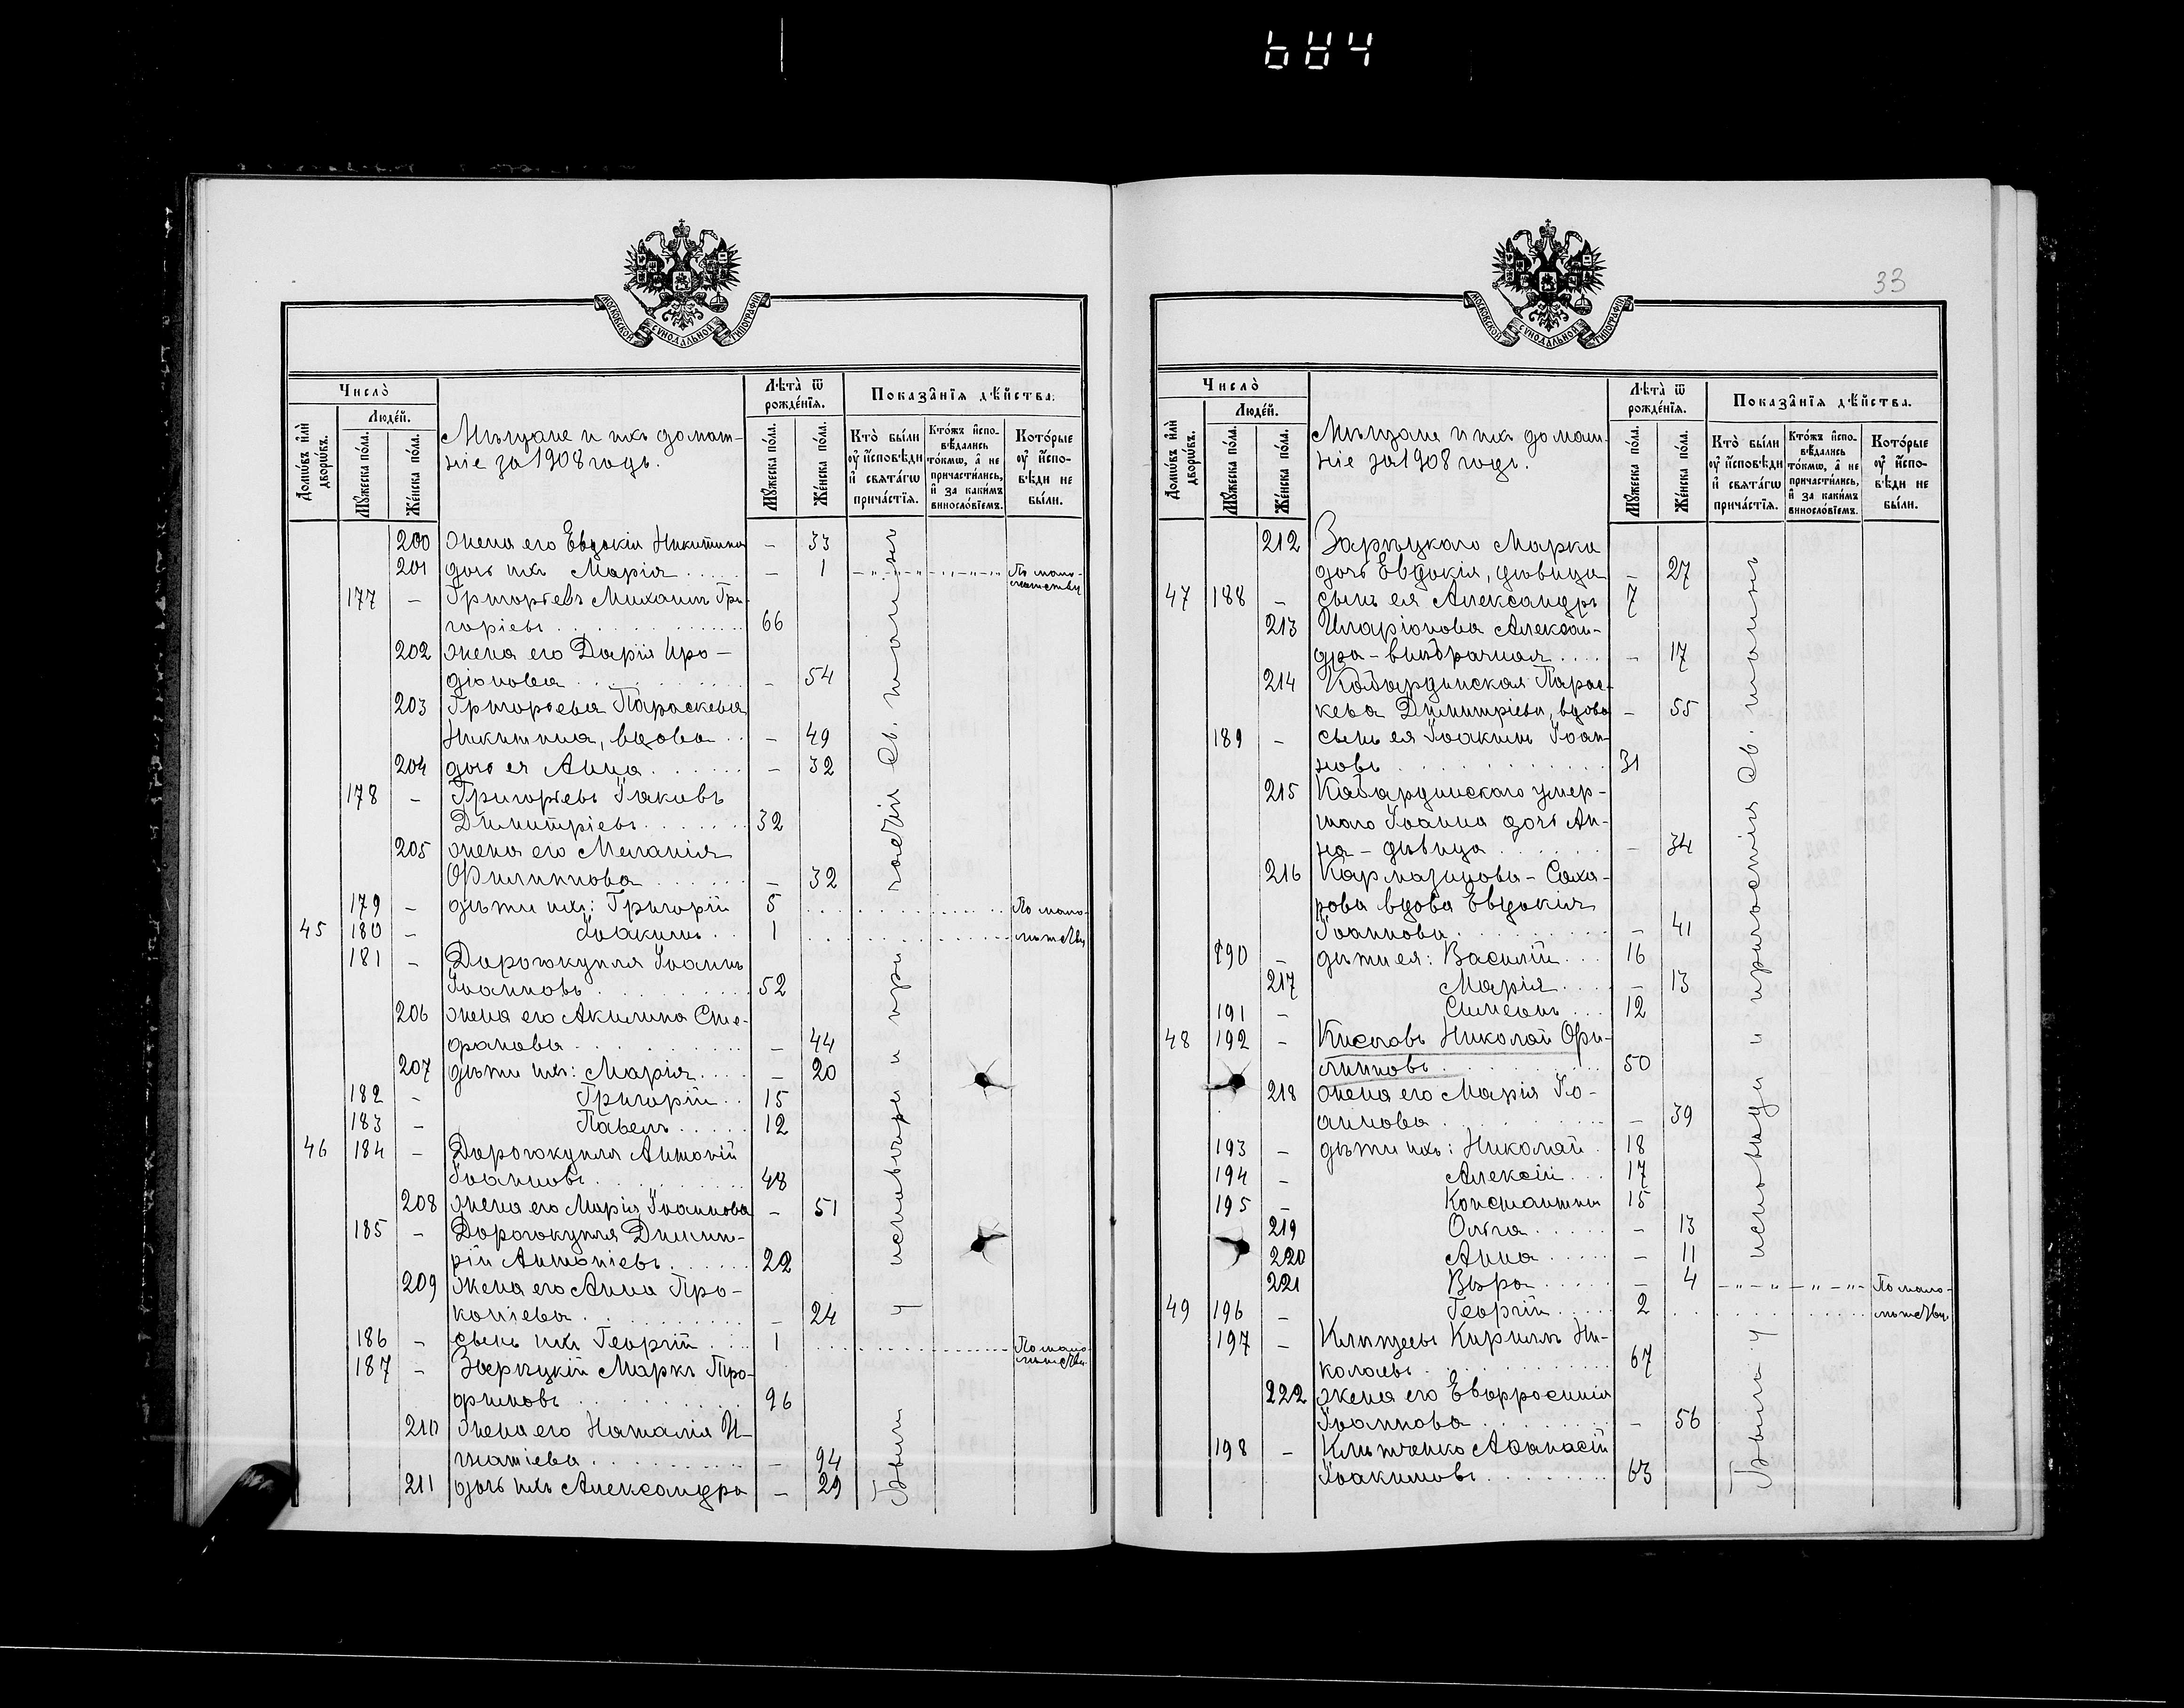 684
МОСКОВСКОЙ СѴНОДАЛЬНОЙ ТИПОГРАФІИ
Число̀
Люде́й.
Домѡ́въ и҆лѝ дворѡ́въ.
Мꙋ́жеска по́ла.
Же́нска по́ла.
Мѣщане и ихъ домаш-
ніе за 1908 годъ.
Лѣ́та ѿ рожде́нїѧ.
Мꙋ́жеска по́ла.
Же́нска по́ла.
Показа̑нїѧ дѣ́йства.
Кто̀ бы́ли ᲂу҆ и҆сповѣди и҆ свѧта́гѡ прича́стїѧ.
Кто́жъ и҆спо-вѣдались то́кмѡ, а҆ не причасти́лись, и҆ за каки́мъ винослов́їемъ.
Кото́рые ᲂу҆ и҆спо-вѣди не бы́ли.
200 жена его Евдокія Никитина – 33
201 дочь ихъ Марія – 1 По мало-
лѣтству
177 – Григорьевъ Михаилъ Гри-
горіевъ 66
202 жена его Дарія Иро-
діонова – 54
203 Григорьева Параскева
Никитина, вдова – 49
204 дочь ея Анна – 32
178 – Григорьевъ Іаковъ
Димитріевъ 32
205 жена его Меланія
Филиппова – 32
179 – дѣти ихъ: Григорій 5 По мало-
45 180 – Іоакимъ 1 лѣтству
181 – Дорогокупля Іоаннъ
Іоанновъ 52
206 жена его Акилина Сте-
фанова – 44
207 дѣти ихъ: Марія – 20
182 – Григорій 15
183 – Павелъ 12
46 184 – Дорогокупля Антоній
Іоанновъ 48
208 жена его Марія Іоаннова – 51
185 – Дорогокупля Димит-
рій Антоніевъ 22
209 жена его Анна Про-
копіева – 24
186 – сынъ ихъ Георгій 1 По мало-
лѣтству
187 – Зарѣцкій Маркъ Тро-
фимовъ 96
210 жена его Наталія И-
гнатіева – 94
211 дочь ихъ Александра – 29
Были у исповѣди и причастія Св. таинъ
33
МОСКОВСКОЙ СѴНОДАЛЬНОЙ ТИПОГРАФІИ
Число̀
Люде́й.
Домѡ́въ и҆лѝ дворѡ́въ.
Мꙋ́жеска по́ла.
Же́нска по́ла.
Мѣщане и ихъ домаш-
ніе за 1908 годъ.
Лѣ́та ѿ рожде́нїѧ.
Мꙋ́жеска по́ла.
Же́нска по́ла.
Показа̑нїѧ дѣ́йства.
Кто̀ бы́ли ᲂу҆ и҆сповѣди и҆ свѧта́гѡ прича́стїѧ.
Кто́жъ и҆спо-вѣдались то́кмѡ, а҆ не причасти́лись, и҆ за каки́мъ винослов́їемъ.
Кото́рые ᲂу҆ и҆спо-вѣди не бы́ли.
212 Зарѣцкаго Марка
дочь Евдокія, дѣвица – 27
47 188 – сынъ ея Александръ 7
213 Иларіонова Алексан-
дра – внѣбрачная – 17
214 Кабардинская Парас-
кева Димитріева, вдова – 55
189 – сынъ ея Іоакимъ Іоан-
новъ 31
215 Кабардинскаго умер-
шаго Іоанна дочь Ан-
на – дѣвица – 34
216 Кармазинова – Саха-
рова вдова Евдокія
Іоаннова – 41
190 – дѣти ея: Василій 16
217 Марія – 13
191 – Симеонъ 12
48 192 – Кисловъ Николай Фи-
липповъ 50
218 жена его Марія Іо-
аннова – 39
193 – дѣти ихъ: Николай 18
194 – Алексій 17
195 – Константин 15
219 Ольга – 13
220 Анна – 11
221 Вѣра – 4 По мало-
49 196 – Георгій 2 лѣтству
197 – Кирилъ Ни-
колаевъ 67
222 жена его Евфросинія
Іоаннова – 56
198 – Аѳанасій
Іоакимовъ 63
Были у исповѣди и причастія Св. таинъ